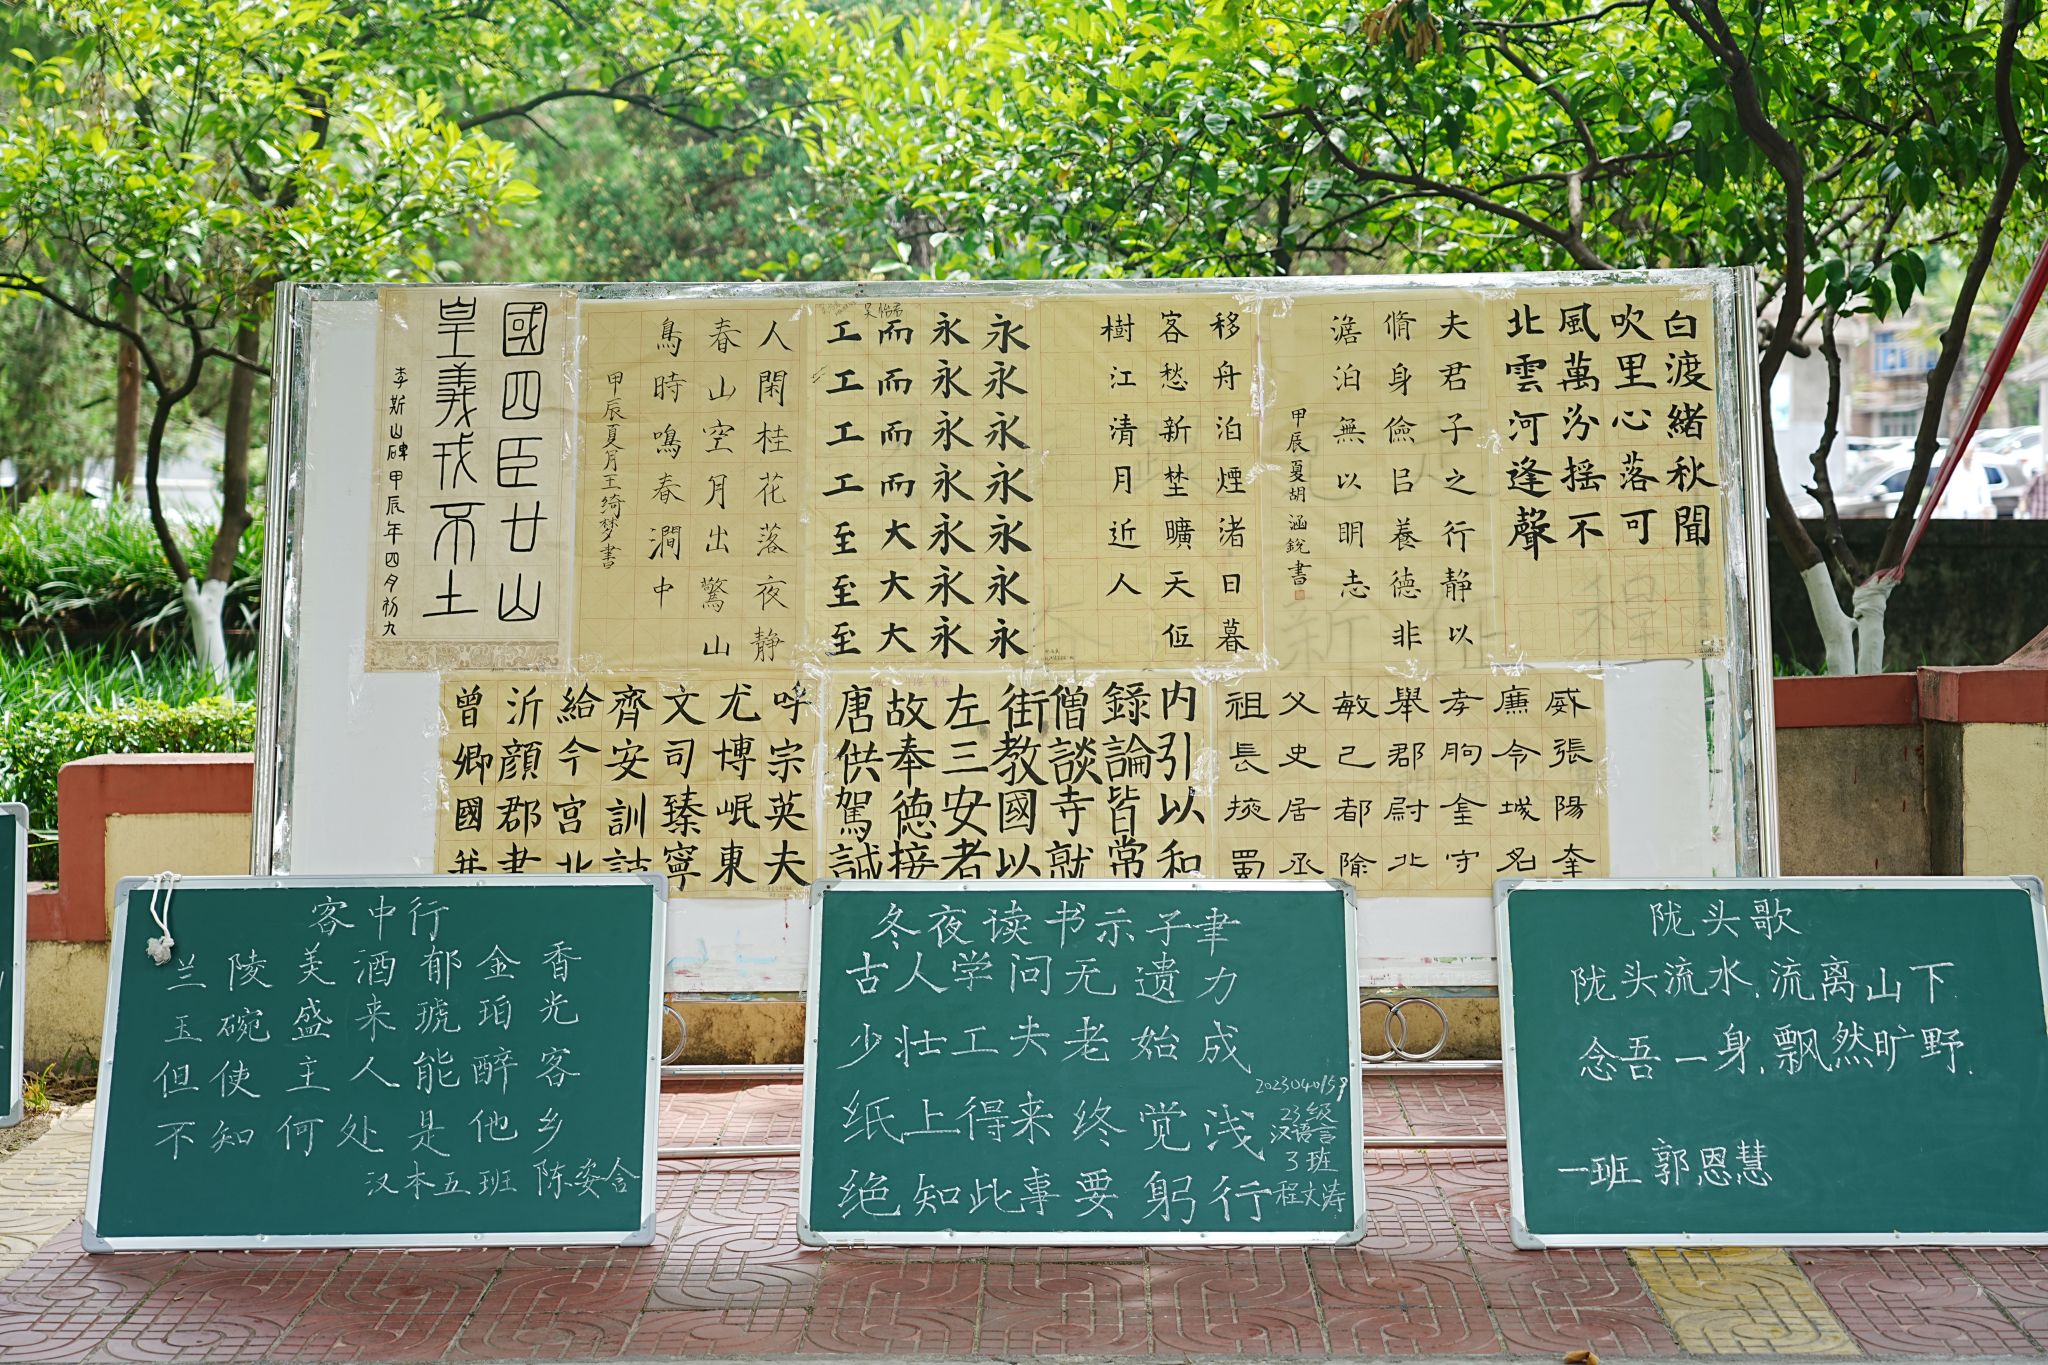 白渡緒秋聞
吹里心落可
風萬汾搖不
北雲河逢聲
夫君子之行静以
脩身儉㠯養德非
澹泊無以明志
甲辰夏胡涵銳書
移舟泊煙渚日暮
客愁新埜曠天仾
樹江清月近人
永永永永永永永
永永永永永永永
而而而而大大大
工工工工至至至
人閑桂花落夜静
春山空月出驚山
鳥時鳴春澗中
甲辰夏月王绮梦書
國四臣廿山
皇義戎不土
李斯山碑甲辰年四月初九
威張陽奎
廉令城名
孝朐奎守
舉郡尉北
敏己都隃
父史居丞
祖長掖蜀
内引以和
錄論皆常
僧談寺就
街教國以
左三安者
故奉德接
唐供駕誠
呼宗英夫
尤博岷東
文司臻寧
齊安訓詁
給今宮北
沂顏郡書
曾卿國并
客中行
兰陵美酒郁金香
玉碗盛来琥珀光
但使主人能醉客
不知何处是他乡
汉本五班 陈姿含
冬夜读书示子聿
古人学问无遗力
少壮工夫老始成
纸上得来终觉浅
绝知此事要躬行
2023040159
23级
汉语言
3班
程文涛
陇头歌
陇头流水，流离山下.
念吾一身，飘然旷野.
一班 郭恩慧